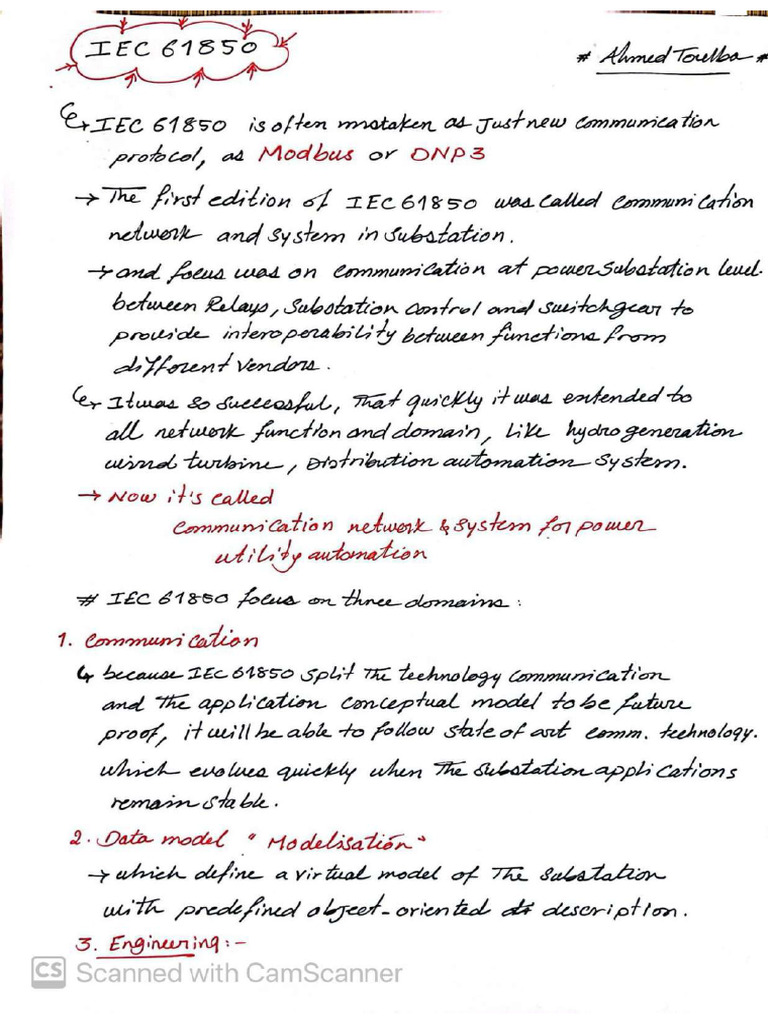 IEC 61850
# Ahmed Toulba #
IEC 61850 is often mistaken as Just new communication
protocol, as Modbus or DNP3
→ The first edition of IEC 61850 was called Communication
network and system in substation.
→ and focus was on communication at power substation level.
between Relays, Substation Control and switchgear to
provide interoperability between functions from
different vendors.
It was so successful, That quickly it was extended to
all network function and domain, Like hydro generation
wind turbine, Distribution automation system.
→ Now it's called
Communication network & system for power
utility automation
# IEC 61850 focus on three domains:
1. Communication
↳ because IEC 61850 split The technology communication
and The application conceptual model to be future
proof, it will be able to follow state of art comm. technology.
which evolves quickly when The substation applications
remain stable.
2. Data model "Modelisation"
→ which define a virtual model of The substation
with predefined object-oriented description.
3. Engineering:-
CS Scanned with CamScanner